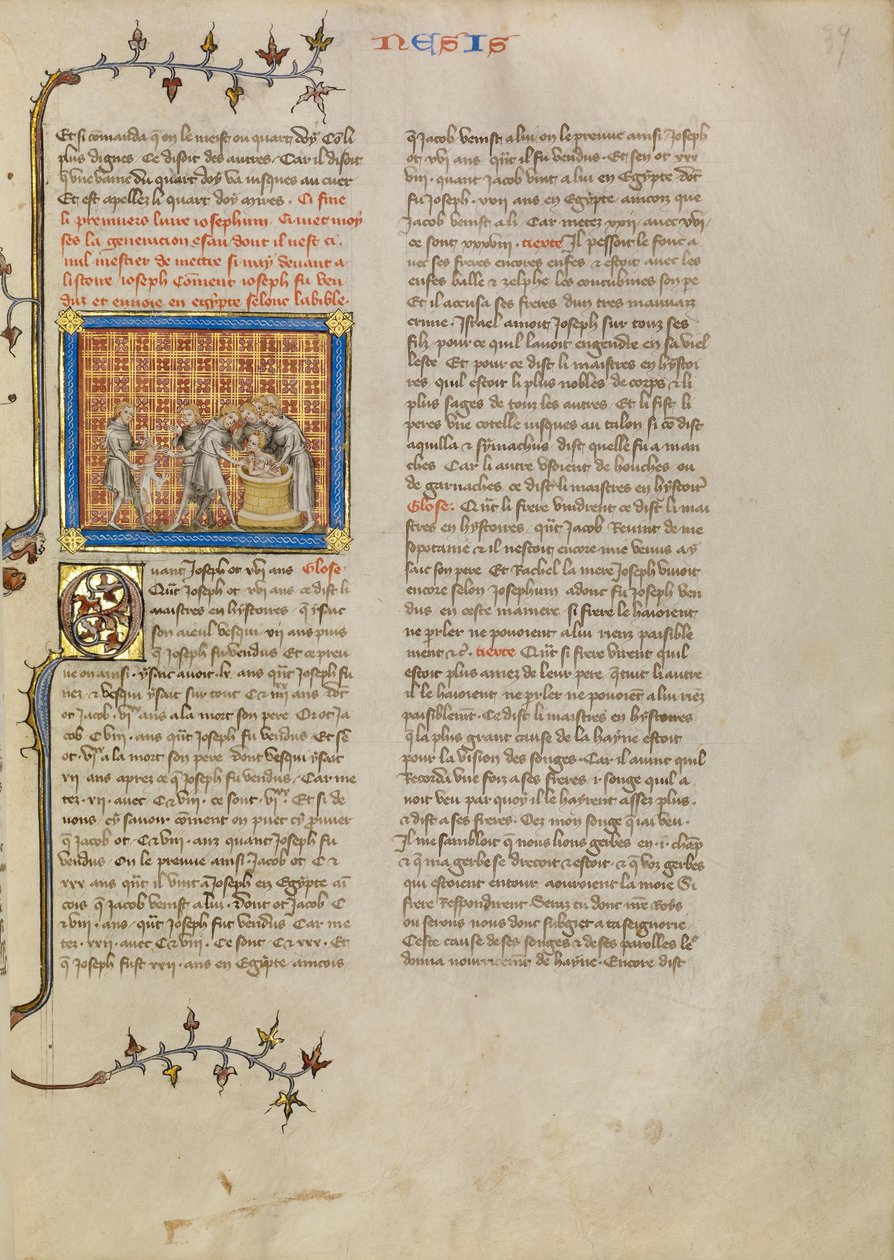 NESIS
39
Et si comanda q̃ on le meist ou quart doy. Cõ li
plus dignes. Ce disoit des autres. Car il disoit
q̃ vne vaine du quart doy va iusques au cuer
Et est apellez li quart doy mires. Ci fine
li premiers liure iosephum. Ci met moy
ses la generacion esau dont il nest ci.
nul mestier de mettre si vay deuant a
listoire ioseph Coment ioseph fu ven
duz et enuoie en egypte selonc la bible.
Quant Joseph ot .xvj. ans Glose
Qũt Joseph ot .xvj. ans ce dist li
maistres en hystoires. q̃ ysaac
son aieul vesqui .xij. ans puis
q̃ Joseph fu vendus Et ce preu
ue on ainsi. ysaac auoit .lx. ans qũt Joseph fu
nez. & vesqui ysaac sur tout C & iiij^xx ans dõt
ot Jacob .vj^xx ans a la mort son pere Or ot Ja
cob C viij. ans qũt Joseph fu vendus Et sẽ
ot .vj^xx a la mort son pere dont vesqui ysaac
xij ans aprez ce q̃ Joseph fu vendus. Car me
tez .xij. auec C & viij. ce sont .vj^xx. Et si de
uons cy sauoir coment on puet cy prouuer
q̃ Jacob ot .C & viij. anz quant Joseph fu
vendus. On le preuue ainsi Jacob ot C &
xxx ans qũt il vint a Joseph en Egypte ain
cois q̃ Jacob venist a lui. Dont ot Jacob C
& viij. ans. qũt Joseph fut vendus Car me
tez .xxij. auec C & viij. Ce sont .C & xxx. Et
q̃ Joseph fust xxij. ans en Egypte aincois
q̃ Jacob venist a lui. on le preuue ainsi Joseph
ot .xvj ans. qũt il fu vendus. Et sen ot xxx
viij. quant Jacob vint a lui en Egypte dõt
fu Joseph .xxij ans en Egypte aincoiz que
Jacob venist a li. Car metez .xxij. auec .xvj.
ce sont .xxxviij. tiexte Il pessoit le fouc a
uec ses freres encores enfes & estoit auec les
enfes balle & zelphe les concubines son pe
Et il accusa ses freres dun tres mauuaiz
crime. Israel amoit Joseph sur touz ses
filz pour ce quil lauoit engendre en sa viel
lesce. Et pour ce dist li maistres en hystoi
res quil estoit li plus nobles de corps & li
plus sages de touz les autres. Et li fist li
peres vne cotelle iusques au talon si cõ dist
aquilla & symachus dist quelle fu a man
ches. Car li autre vsoient de houches ou
de garnaches ce dist li maistres en hystoir̃
Glose. Qũt li frere vindrent ce dist li mai
stres en hystoires. qũt Jacob Reuint de me
sopotame & il nestoit encore mie venus a y
saac son pere Et Rachel la mere Joseph viuoit
encore selon Josephum adonc fu Joseph ven
dus en ceste maniere. si frere le haioient
ne p̃ler ne pouoient a lui riens paisible
ment &c̃. tiexte Qũt si frere virent quil
estoit plus amez de leur pere q̃ tuit li autre.
il le haioient ne p̃ler ne pouoiẽt a lui riez
paisiblemt̃. Ce dist li maistres en hystoires
q̃ la plus grant cause de la hayne estoit
pour la vision des songes. Car il auint quil
Recorda vne foiz a ses freres .i. songe quil a
uoit veu par quoy il le hayrent assez plus.
& dist a ses freres. Oez mon songe q̃ iai veu.
Il me sambloit q̃ nous lions gerbes en .i. chãp
& q̃ ma gerbe se drecoit & estoit. & q̃ voz gerbes
qui estoient entour aouroient la moie Si
frere Respondirent Seraz tu dont nr̃e Roys
ou serons nous dont subgiet a ta seignorie
Ceste cause de ses songes & de ses parolles le^r
donna nourricemt̃ de hayne. Encore dist